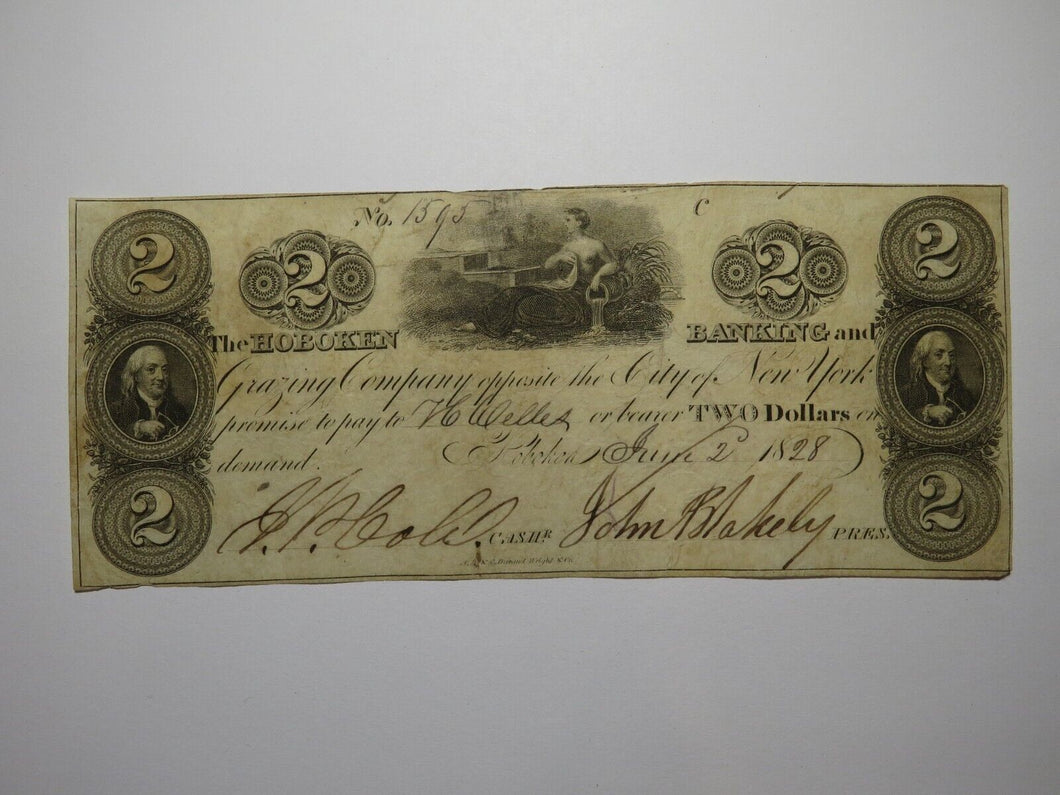 No. 1595 C
2 2 2 2
The HOBOKEN BANKING and
Grazing Company opposite the City of New York
promise to pay to or bearer TWO Dollars on
demand. Hoboken June 2 1828
2 CASHR. John Blakely PRES. 2
Durand Wright & Co.